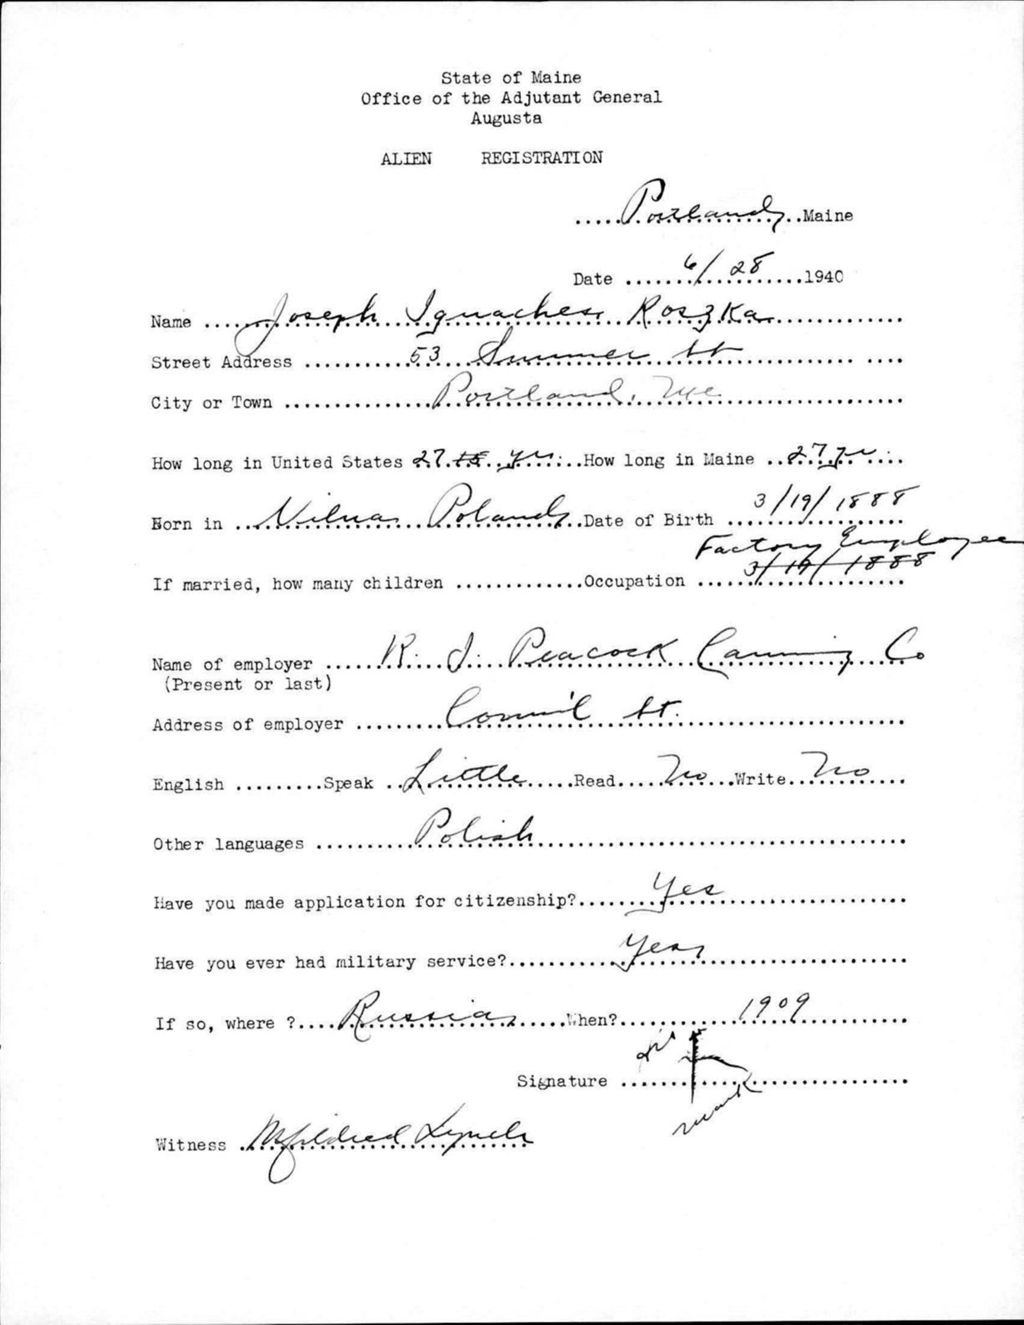 State of Maine
Office of the Adjutant General
Augusta
ALIEN REGISTRATION
.....Portland..Maine
Date ....6/28....1940
Name ....Joseph Ignaches Roszka............
Street Address ...........53 Summer St.........
City or Town ..............Portland, Me.................
How long in United States 27 15 yrs...How long in Maine ..27 yr...
Born in ..Vilna Poland..Date of Birth ...3/19/1888
Factory Employee
If married, how many children .............Occupation ...3/19/1888
Name of employer .....R. J. Peacock Canning Co
(Present or last)
Address of employer ........ St.....................
English .........Speak ..Little.....Read....No...Write..No....
Other languages ..........Polish...................................
Have you made application for citizenship?.......Yes...................
Have you ever had military service?...........Yes....................
If so, where ?....Russia.....When?............1909..........
his
Signature ......X................
mark
Witness .Mildred Lynch